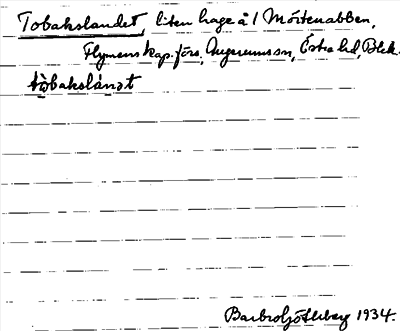 Tobakslandet, liten hage å 1 Mörtenabben,
Flymens kap.förs., Augerums sn, Östra hd, Blek.
tòbakslánət
Barbro Götherberg 1934.